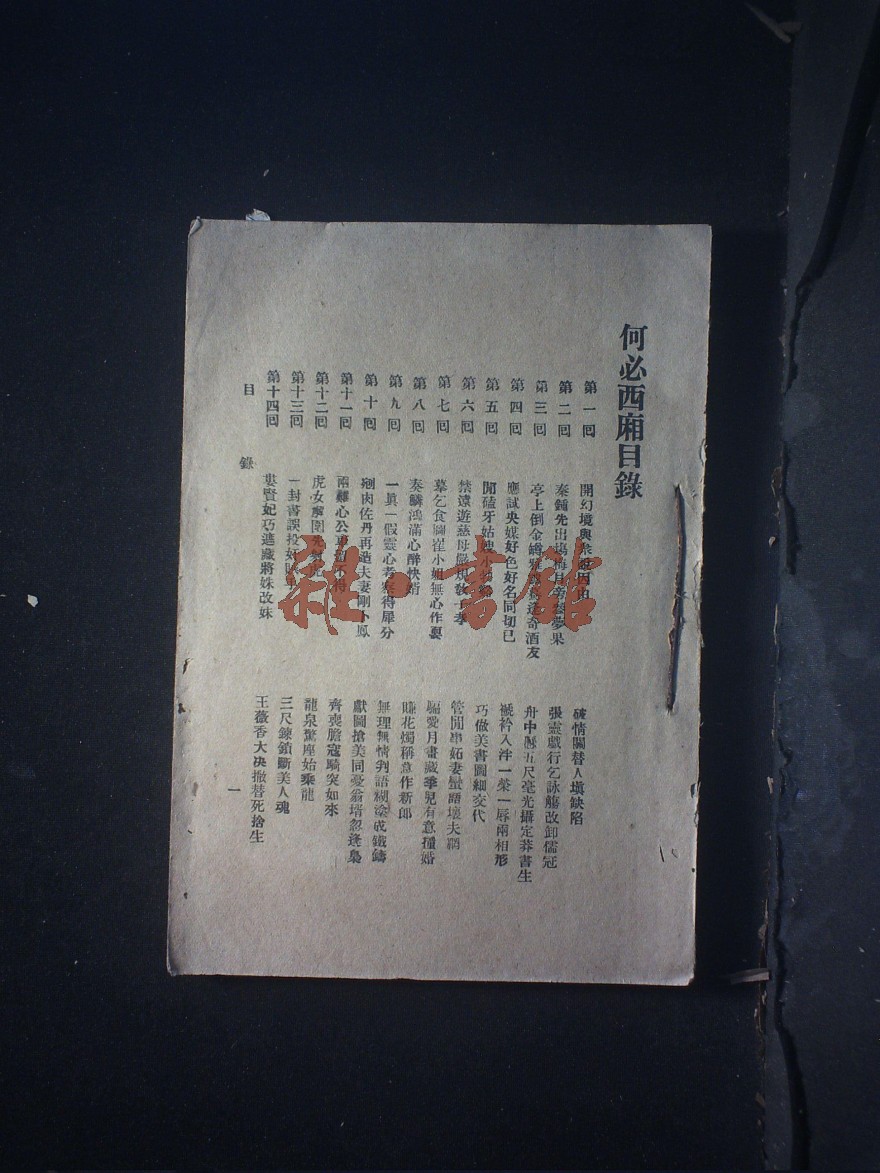 何必西廂目錄
第一回 開幻境與 破情關替人塡缺陷
第二回 秦鍾先出 夢果 張靈戲行乞詠觴改卸儒冠
第三回 亭上倒金罇 奇酒友 舟中 五尺毫光攝定莽書生
第四回 應試央媒好色好名同切己 襕衿入泮一榮一辱兩相形
第五回 閒磕牙姑嫂小 巧做美書圖細交代
第六回 禁遠遊慈母嚴規敎子孝 管閒串妬妻蠻語壞夫綱
第七回 摹乞食圖崔小姐無心作 騙愛月畫藏季兒有意 婚
第八回 奏鱗鴻滿心醉快婿 賺花燭稱意作新郎
第九回 一眞一假靈心考案得犀分 無理無情判語糊塗成鐵鑄
第十回 剜肉佐丹再造夫妻剛卜鳳 獻圖搶美同憂翁壻忽逢梟
第十一回 兩難心公 不 齊喪膽寇騎突如來
第十二回 虎女解圍先 虎 龍泉驚座始乘龍
第十三回 一封書誤投好 三尺鍊鎖斷美人魂
第十四回 婁賢妃巧遮藏將姝改妹 王薇香大决撤替死捨生
目錄 一
雜·書館